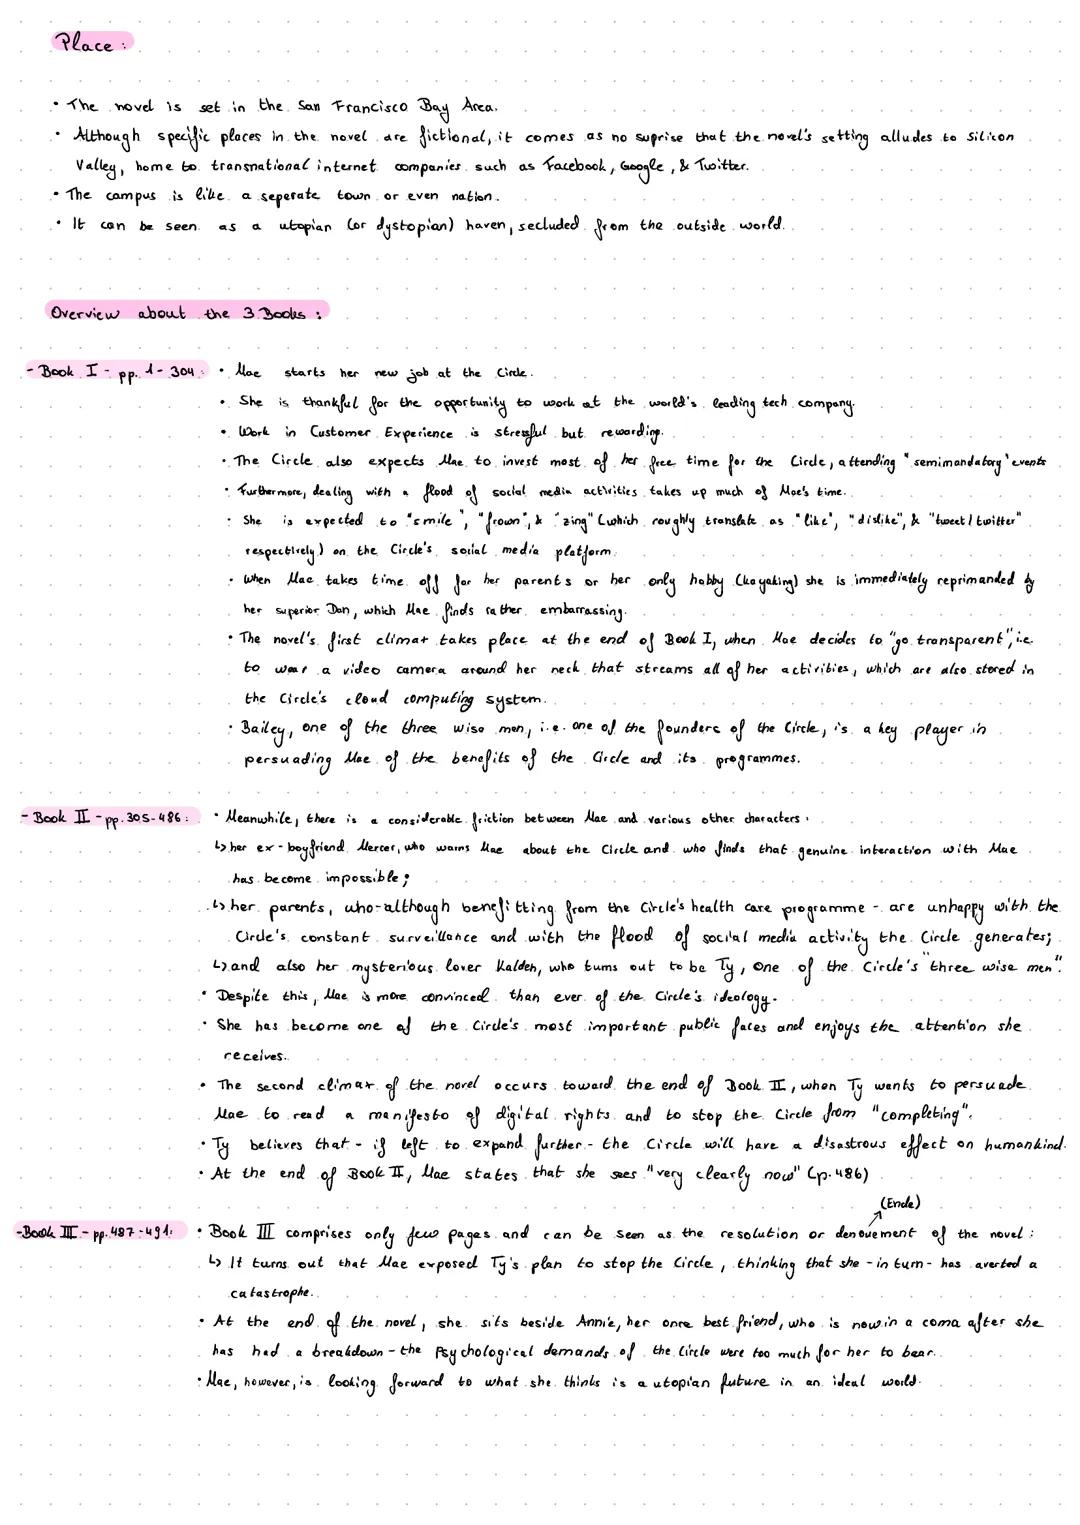 Place :
• The novel is set in the San Francisco Bay Area.
• Although specific places in the novel are fictional, it comes as no suprise that the novel's setting alludes to Silicon
Valley, home to transnational internet companies such as Facebook, Google, & Twitter.
• The campus is like a seperate town or even nation.
• It can be seen as a utopian (or dystopian) haven, secluded from the outside world.
Overview about the 3 Books :
- Book I - pp. 1 - 304 : • Mae starts her new job at the Circle.
• She is thankful for the opportunity to work at the world's leading tech company.
• Work in Customer Experience is stressful but rewarding.
• The Circle also expects Mae to invest most of her free time for the Circle, attending "semimandatory" events
• Furthermore, dealing with a flood of social media activities takes up much of Mae's time.
• She is expected to "smile", "frown", & "zing" (which roughly translate as "like", "dislike", & "tweet / twitter"
respectively) on the Circle's social media platform.
• When Mae takes time off for her parents or her only hobby (kayaking) she is immediately reprimanded by
her superior Dan, which Mae finds rather embarrassing.
• The novel's first climax takes place at the end of Book I, when Mae decides to "go transparent", i.e.
to wear a video camera around her neck that streams all of her activities, which are also stored in
the Circle's cloud computing system.
• Bailey, one of the three wise men, i.e. one of the founders of the Circle, is a key player in
persuading Mae of the benefits of the Circle and its programmes.
- Book II - pp. 305-486 : • Meanwhile, there is a considerable friction between Mae and various other characters :
↳ her ex-boyfriend Mercer, who warns Mae about the Circle and who finds that genuine interaction with Mae
has become impossible ;
↳ her parents, who - although benefitting from the Circle's health care programme - are unhappy with the
Circle's constant surveillance and with the flood of social media activity the Circle generates;
↳ and also her mysterious lover Kalden, who turns out to be Ty, one of the Circle's "three wise men".
• Despite this, Mae is more convinced than ever of the Circle's ideology.
• She has become one of the Circle's most important public faces and enjoys the attention she
receives.
• The second climax of the novel occurs toward the end of Book II, when Ty wants to persuade
Mae to read a manifesto of digital rights and to stop the Circle from "completing".
• Ty believes that - if left to expand further - the Circle will have a disastrous effect on humankind.
• At the end of Book II, Mae states that she sees "very clearly now" (p. 486)
(Ende)
- Book III - pp. 487-491: • Book III comprises only few pages and can be seen as the resolution or denouement of the novel :
↳ It turns out that Mae exposed Ty's plan to stop the Circle, thinking that she - in turn - has averted a
catastrophe.
• At the end of the novel, she sits beside Annie, her once best friend, who is now in a coma after she
has had a breakdown - the psychological demands of the Circle were too much for her to bear.
• Mae, however, is looking forward to what she thinks is a utopian future in an ideal world.